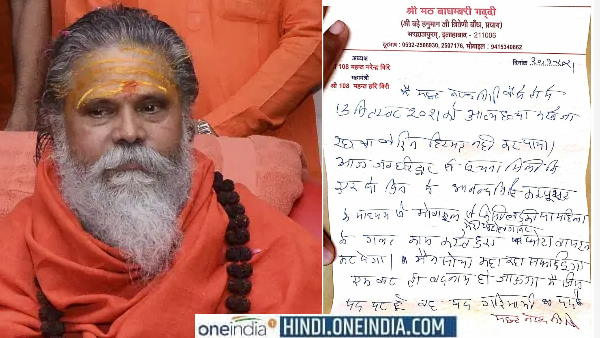 श्री मठ बाघम्बरी गद्दी
(श्री बड़े हनुमान जी त्रिवेणी बाँध, प्रयाग)
इलाहाबाद - 211006
दूरभाष : 0532-2506830, 2507176, मोबाइल : 9415340662
अध्यक्ष
दिनांक
108 महन्त नरेन्द्र गिरी
महामंत्री
श्री 108 महन्त हरि गिरी
मै महन्त नरेन्द्र गिरि
13 सितम्बर 2021 को आत्महत्या करने जा
रहा था लेकिन हिम्मत नही कर पाया।
आज जब हरिद्वार से सूचना मिली कि
एक दो दिन में आनन्द गिरि कम्प्यूटर
के माध्यम से मोबाइल से किसी लड़की या महिला
के गलत काम करते हुए फोटो वायरल
कर देगा। मैने सोचा कहा तक सफाई दूँगा
एक बार तो बदनाम हो जाऊगा मै जिस
पद पर हूँ वह पद गरिमामयी पद है
oneindia HINDI.ONEINDIA.COM